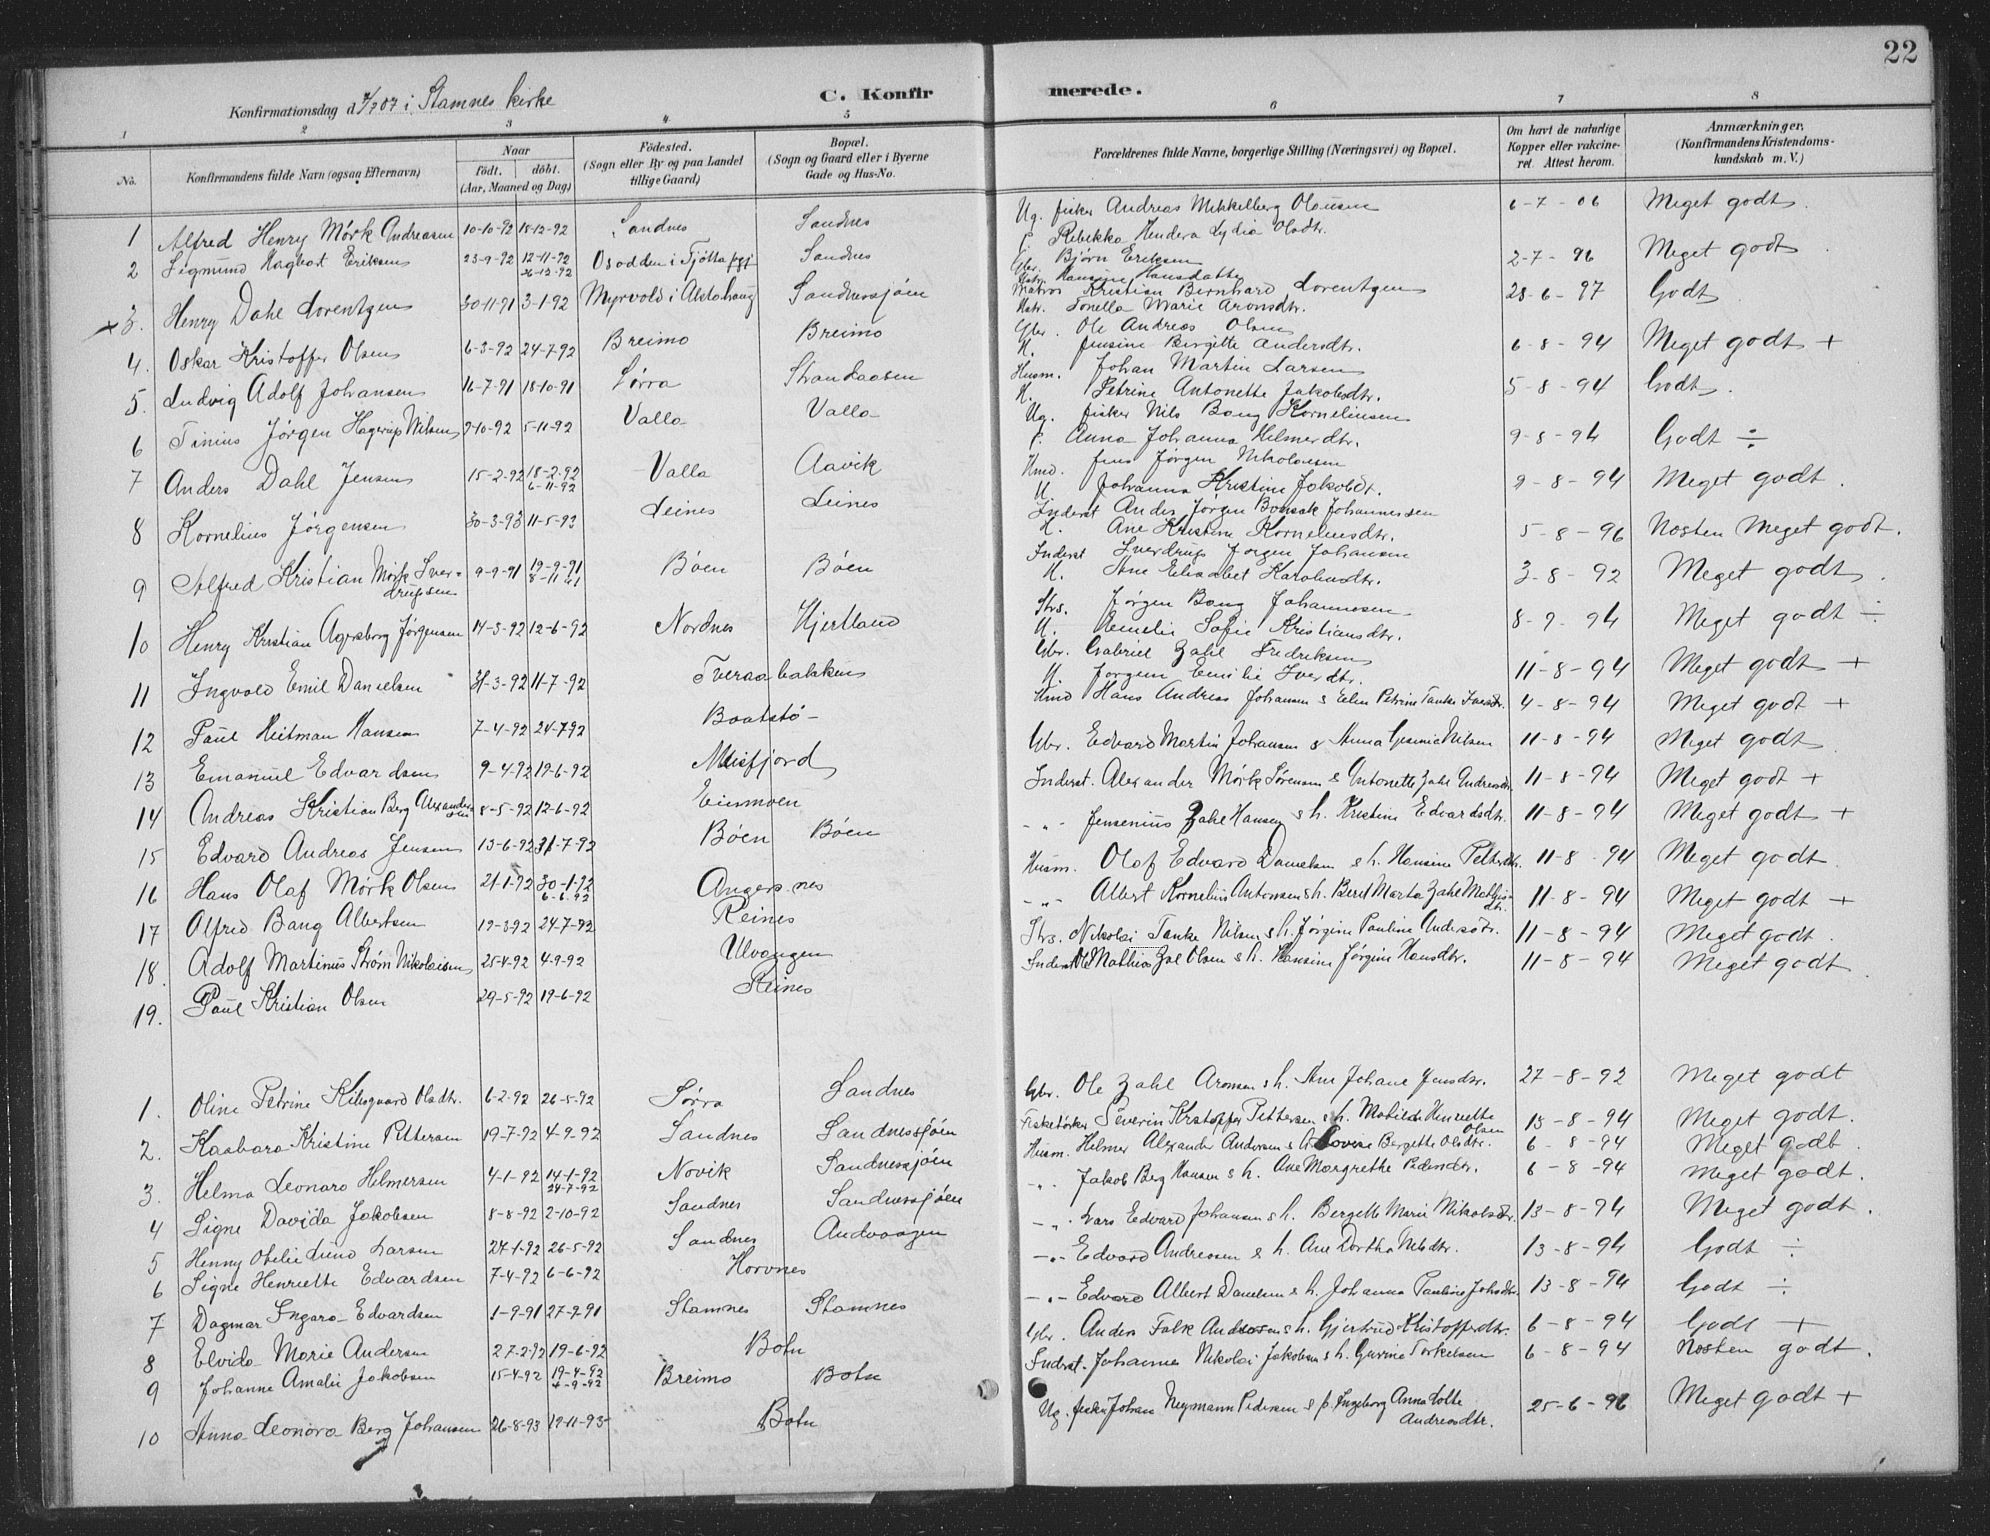 22
Konfirmationsdag d 7/7 07 i Stamnes kirke
C. Konfirmerede.
1 2 3 4 5 6 7 8
No. Konfirmandens fulde Navn (ogsaa Efternavn)
Naar født. døbt. (Aar, Maaned og Dag)
Fødested. (Sogn eller By og paa Landet tillige Gaard)
Bopæl. (Sogn og Gaard eller i Byerne Gade og Hus-No.
Forældrenes fulde Navne, borgerlige Stilling (Næringsvei) og Bopæl.
Om havt de naturlige Kopper eller vakcineret. Attest herom.
Anmærkninger. (Konfirmandens Kristendomskundskab m. V.)
1 Alfred Henry Mørk Andreasen 10-10-92 18-12-92 Sandnes Sandnes Ug. fisker Andreas Mikkelberg Olausen P. Rebekka Hendera Lydia Olsdtr. 6-7-06 Meget godt.
2 Sigmund Hagbart Eriksen 23-9-92 12-11-92 26-12-92 Osodden i Tjøtta pgj Sandnes Gbr. Bjørn Eriksen Hstr. Hansine Hansdatter 2-7-96 Meget godt.
x 3. Henry Dahl Lorentzen 30-11-91 3-1-92 Myrvold i Alstahaug Sandnessjøen Matros Kristian Bernhard Lorentzen Hstr. Tonella Marie Aronsdtr. 28-6-97 Godt
4. Oskar Kristoffer Olsen 6-3-92 24-7-92 Breimo Breimo Gbr. Ole Andreas Olsen H. Jensine Birgitte Andersdtr. 6-8-94 Meget godt +
5. Ludvig Adolf Johansen 16-7-91 18-10-91 Sørra Strandaasen Husm. Johan Martin Larsen H. Petrine Antonette Jakobsdtr. 5-8-94 Godt.
6 Tinius Jørgen Hagerup Nilsen 9-10-92 5-11-92 Valla Valla Ug. fisker Nils Bang Korneliussen P. Anna Johanna Helmerdtr. 9-8-94 Godt ÷
7 Anders Dahl Jensen 15-2-92 18-2-92 6-11-92 Valla Aavik Hmd. Jens Jørgen Nikolaisen H. Johanna Kristine Jakobdt. 9-8-94 Meget godt.
8 Kornelius Jørgensen 30-3-93 11-5-93 Leines Leines Inderst Anders Jørgen Bonsak Johannessen H. Ane Kristine Korneliusdtr. 5-8-96 Næsten Meget godt.
9 Alfred Kristian Mørk Sverdrupsen 9-9-91 19-9-91 8-11-91 Bøen Bøen Inderst Sverdrup Jørgen Johansen H. Ane Elisabet Karoliusdtr. 3-8-92 Meget godt.
10 Henry Kristian Agersborg Jørgensen 14-3-92 12-6-92 Nordnes Hjertland Strs. Jørgen Bang Johannesen H. Amelie Sofie Kristiansdtr. 8-9-94 Meget godt ÷
11 Ingvald Emil Danielsen 31-3-92 11-7-92 Tveraabakken Gbr. Gabriel Zahl Fredriksen H. Jørgine Emilie Iverdtr. 11-8-94 Meget godt +
12 Paul Heitman Hansen 7-4-92 24-7 92 Baatstø- Hmd Hans Andreas Johansen & Elen Petrine Tanke Iversdtr. 4-8-94 Meget godt +
13 Emanuel Edvardsen 9-4-92 19-6-92 Meisfjord Gbr. Edvard Martin Johansen & Anna Gesinie Nilsen 11-8-94 Meget godt.
14 Andreas Kristian Berg Alexandersen 8-5-92 12-6-92 Einmoen Inderst. Alexander Mørk Sørensen & Antonette Zahl Andreasdtr. 11-8-94 Meget godt +
15 Edvard Andreas Jensen 13-6-92 31-7-92 Bøen Bøen -"- Jensenius Zahl Hansen & h. Kristine Edvardsdtr. 11-8-94 Meget godt +
16 Hans Olaf Mørk Olsen 21-1-92 30-1-92 6-6-92 Angersnes Husm. Olaf Edvard Danielsen & h. Hansine Petterdtr. 11-8-94 Meget godt.
17 Alfred Bang Albertsen 19-3-92 24-7-92 Reines -"- Albert Kornelius Antonsen & h. Berel Marta Zahl Mathisdtr. 11-8-94 Meget godt +
18. Adolf Martinus Strøm Nikolaisen 25-4-92 4-9-92 Ulvangen Strs. Nikolai Tanke Nilsen & h. Jørgine Pauline Andersdtr. 11-8-94 Meget godt.
19. Paul Kristian Olsen 29-5-92 19-6-92 Reines Inderst Ole Mathias Zal Olsen & h. Hansine Jørgine Hansdtr. 11-8-94 Meget godt.
1. Oline Petrine Kilsgaard Olsdtr. 6-2-92 26-5-92 Sørra Sandnes Gbr. Ole Zahl Aronsen & h. Ane Johane Jensdtr. 27-8-92 Meget godt
2. Kasbara Kristine Pettersen 19-7-92 4-9-92 Sandnes Sandnessjøen Fisketørker Severin Kristoffer Pettersen & h. Matilde Henriette Olsen 15-8-94 Meget godt.
3. Helma Leonard Helmersen 4-1-92 14-1-92 24-7-92 Novik Sandnessjøen Husm. Helmer Alexander Andersen & h. Lovise Bergette Olsdtr. 6-8-94 Meget godt.
4 Signe Davida Jakobsen 8-8-92 2-10-92 Sandnes Sandnessjøen -"- Jakob Berg Hansen & h. Ane Margrethe Pedersdtr. 6-8-94 Meget godt.
5 Henny Otelie Lund Larsen 24-1-92 26-5-92 Sandnes Andvaagen -"- Lars Edvard Johansen & h. Bergette Marie Nikolsdtr. 13-8-94 Meget godt.
6 Signe Henriette Edvardsen 7-4-92 6-6-92 Horvnes -"- Edvard Andreasen & h. Ane Dortha Nilsdtr. 13-8-94 Godt ÷
7 Dagmar Ingara Edvardsen 1-9-91 27-9-91 Stamnes Stamnes -"- Edvard Albert Danielsen & h. Johanna Pauline Johsdtr. 13-8-94 Godt ÷
8 Elvida Marie Andersen 27-2-92 19-6-92 Botn Gbr. Anders Falk Andersen & h. Gjertrud Kristofferdtr. 6-8-94 Godt +
9 Johanne Amalie Jakobsen 15-4-92 19-4-92 4-9-92 Breimo Botn Inderst. Johannes Nikolai Jakobsen & h. Gurine Torkelsen 6-8-94 Næsten godt.
10 Anna Leonora Berg Johansen 26-8-93 12-11-93 Botn Ug. fisker Johan Neymann Pedersen & p. Ingeborg Anna Lotte Andreasdtr. 25-6-96 Meget godt +